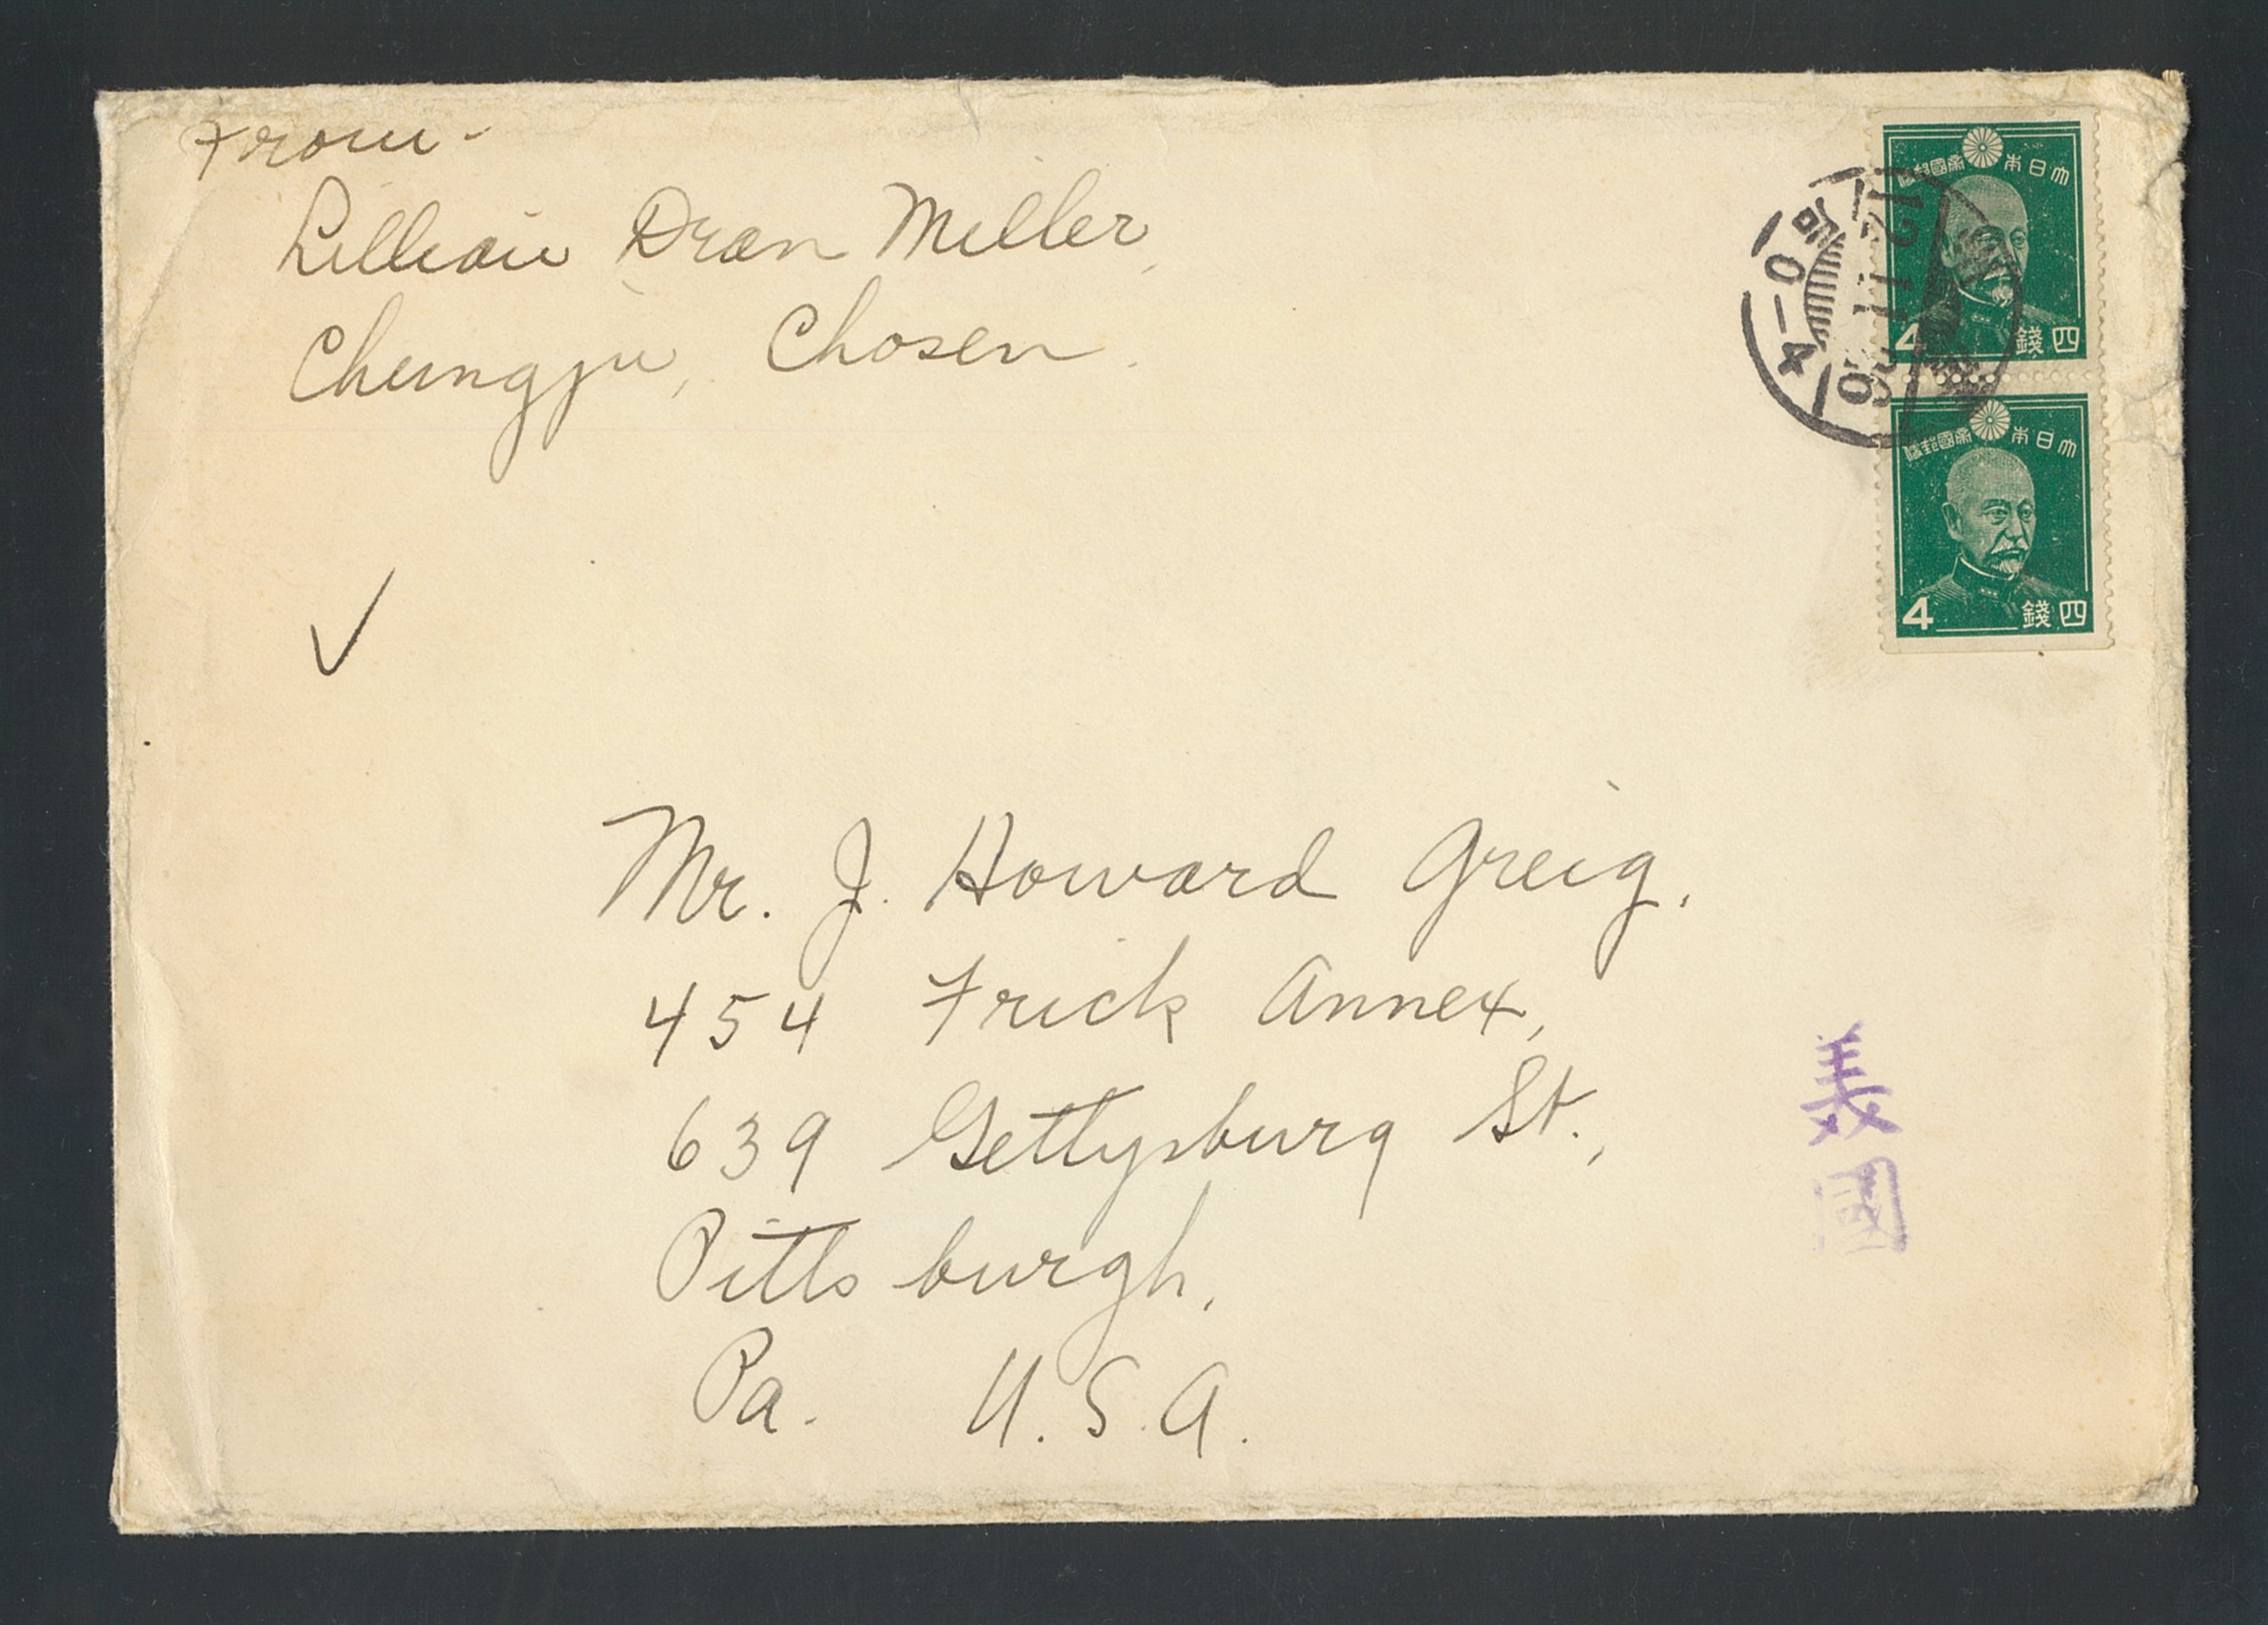 From -
Lillian Dean Miller,
Chungju, Chosen.
大日本帝國郵便
4 四錢
大日本帝國郵便
4 四錢
0-4
Mr. J. Howard Greig.
454 Frick Annex,
639 Gettysburg St.,
Pittsburgh,
Pa. U.S.A.
美
國